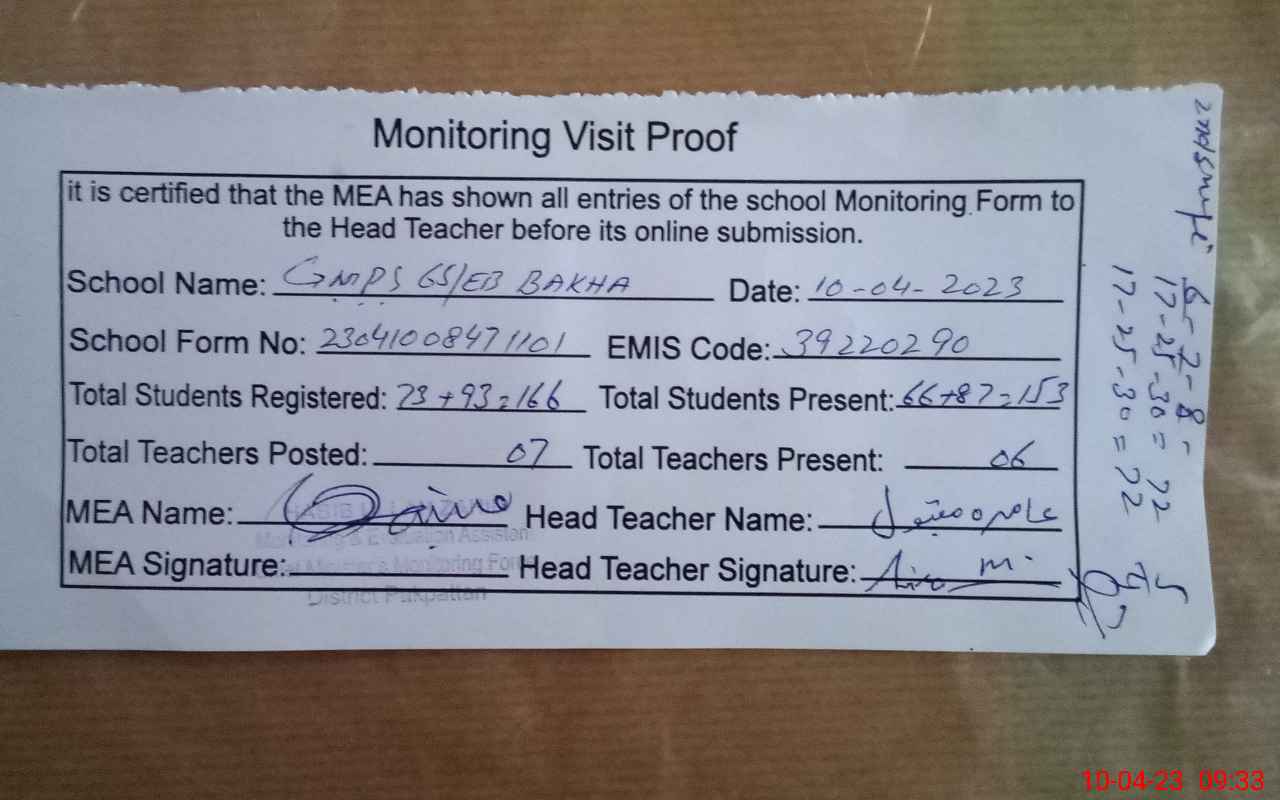 Monitoring Visit Proof
it is certified that the MEA has shown all entries of the school Monitoring Form to
the Head Teacher before its online submission.
School Name: GMPS 65/EB BAKHA Date: 10-04-2023
School Form No: 230410084711101 EMIS Code: 39220290
Total Students Registered: 73+93=166 Total Students Present: 66+87=153
Total Teachers Posted: 07 Total Teachers Present: 06
MEA Name: Head Teacher Name:
Monitoring & Evaluation Assistant
MEA Signature: Head Teacher Signature:
Monitoring For
District Pakpattan
6-7-8-
17-25-30=22
17-25-30=22
10-04-23 09:33